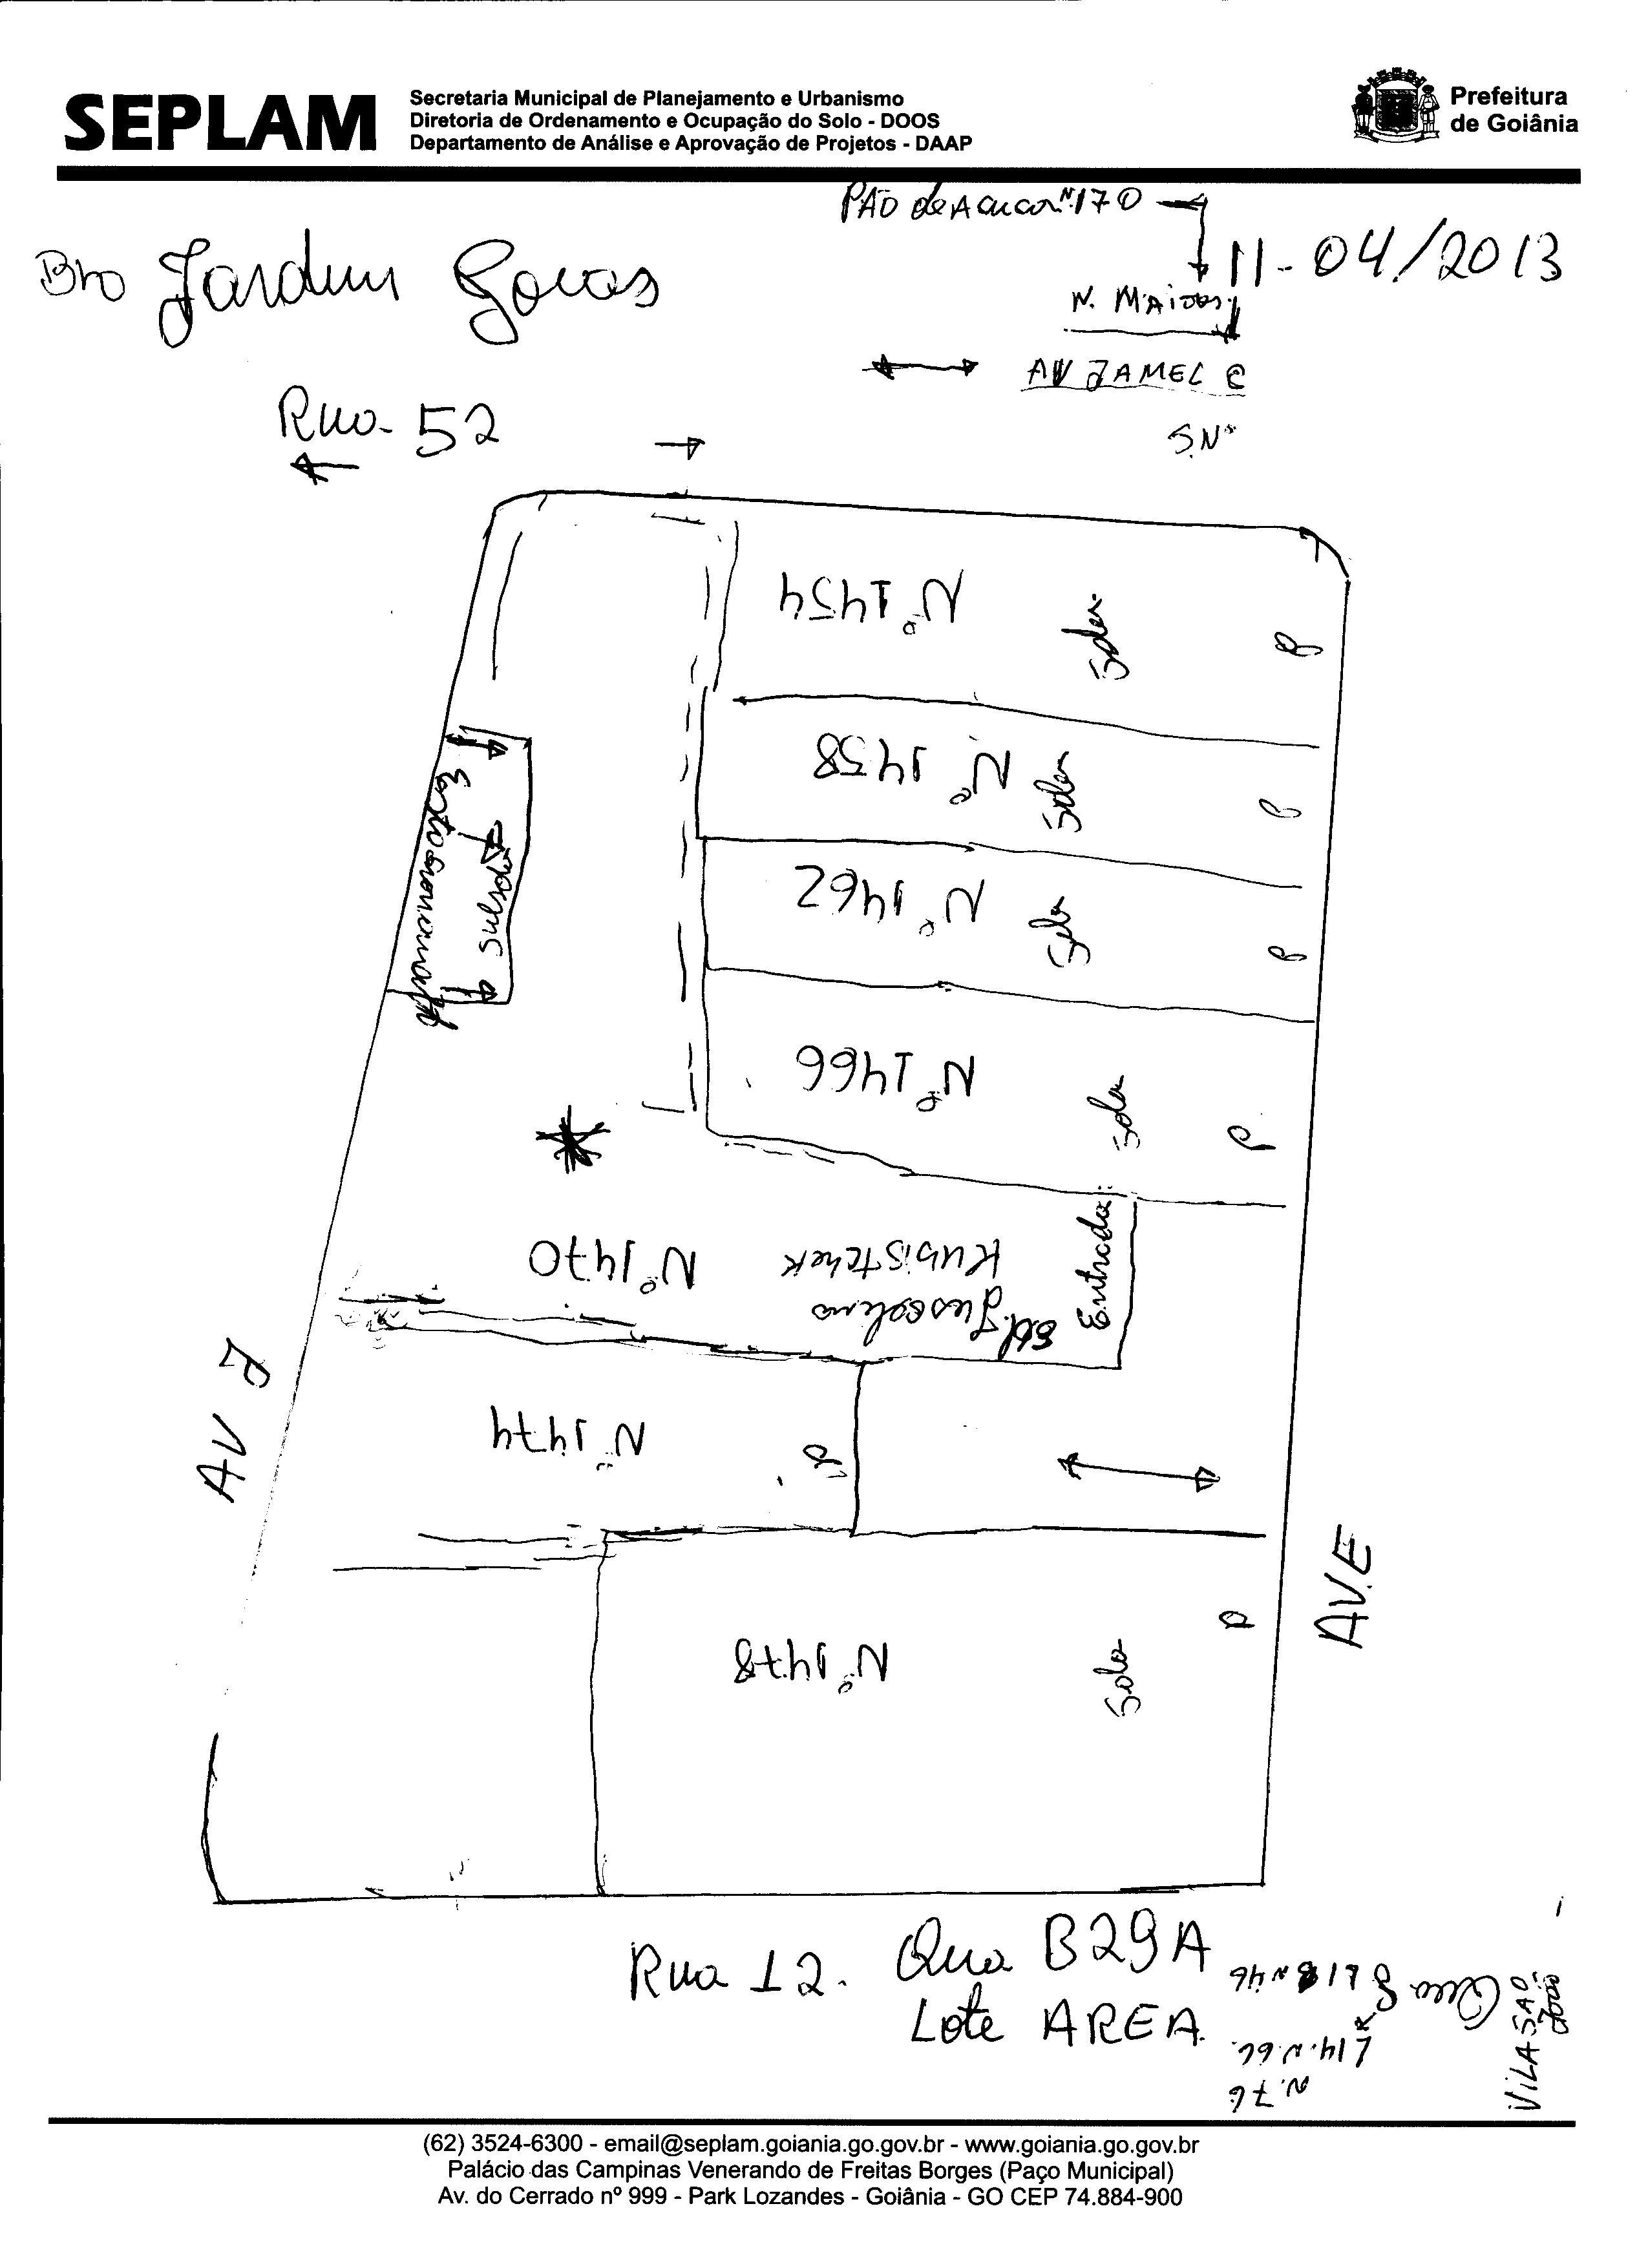 SEPLAM
Secretaria Municipal de Planejamento e Urbanismo
Diretoria de Ordenamento e Ocupação do Solo - DOOS
Departamento de Análise e Aprovação de Projetos - DAAP
Prefeitura
de Goiânia
PÃO de Acucar Nº 170
11-04/2013
Bro Jardim Goias
AV JAMEL C
S.Nº
Rua 52
Nº 1454
Nº 1458
Nº 1462
Nº 1466
Estacionamento
Subsolo
Entrada
Nº 1470
Ed. Juscelino
Kubistchek
AV J
Nº 1474
AV.E
Nº 1478
Sala
Rua 12. Qua B29A
Lote AREA
L14.N.66
N.76
VILA SAO
João
(62) 3524-6300 - email@seplam.goiania.go.gov.br - www.goiania.go.gov.br
Palácio das Campinas Venerando de Freitas Borges (Paço Municipal)
Av. do Cerrado nº 999 - Park Lozandes - Goiânia - GO CEP 74.884-900